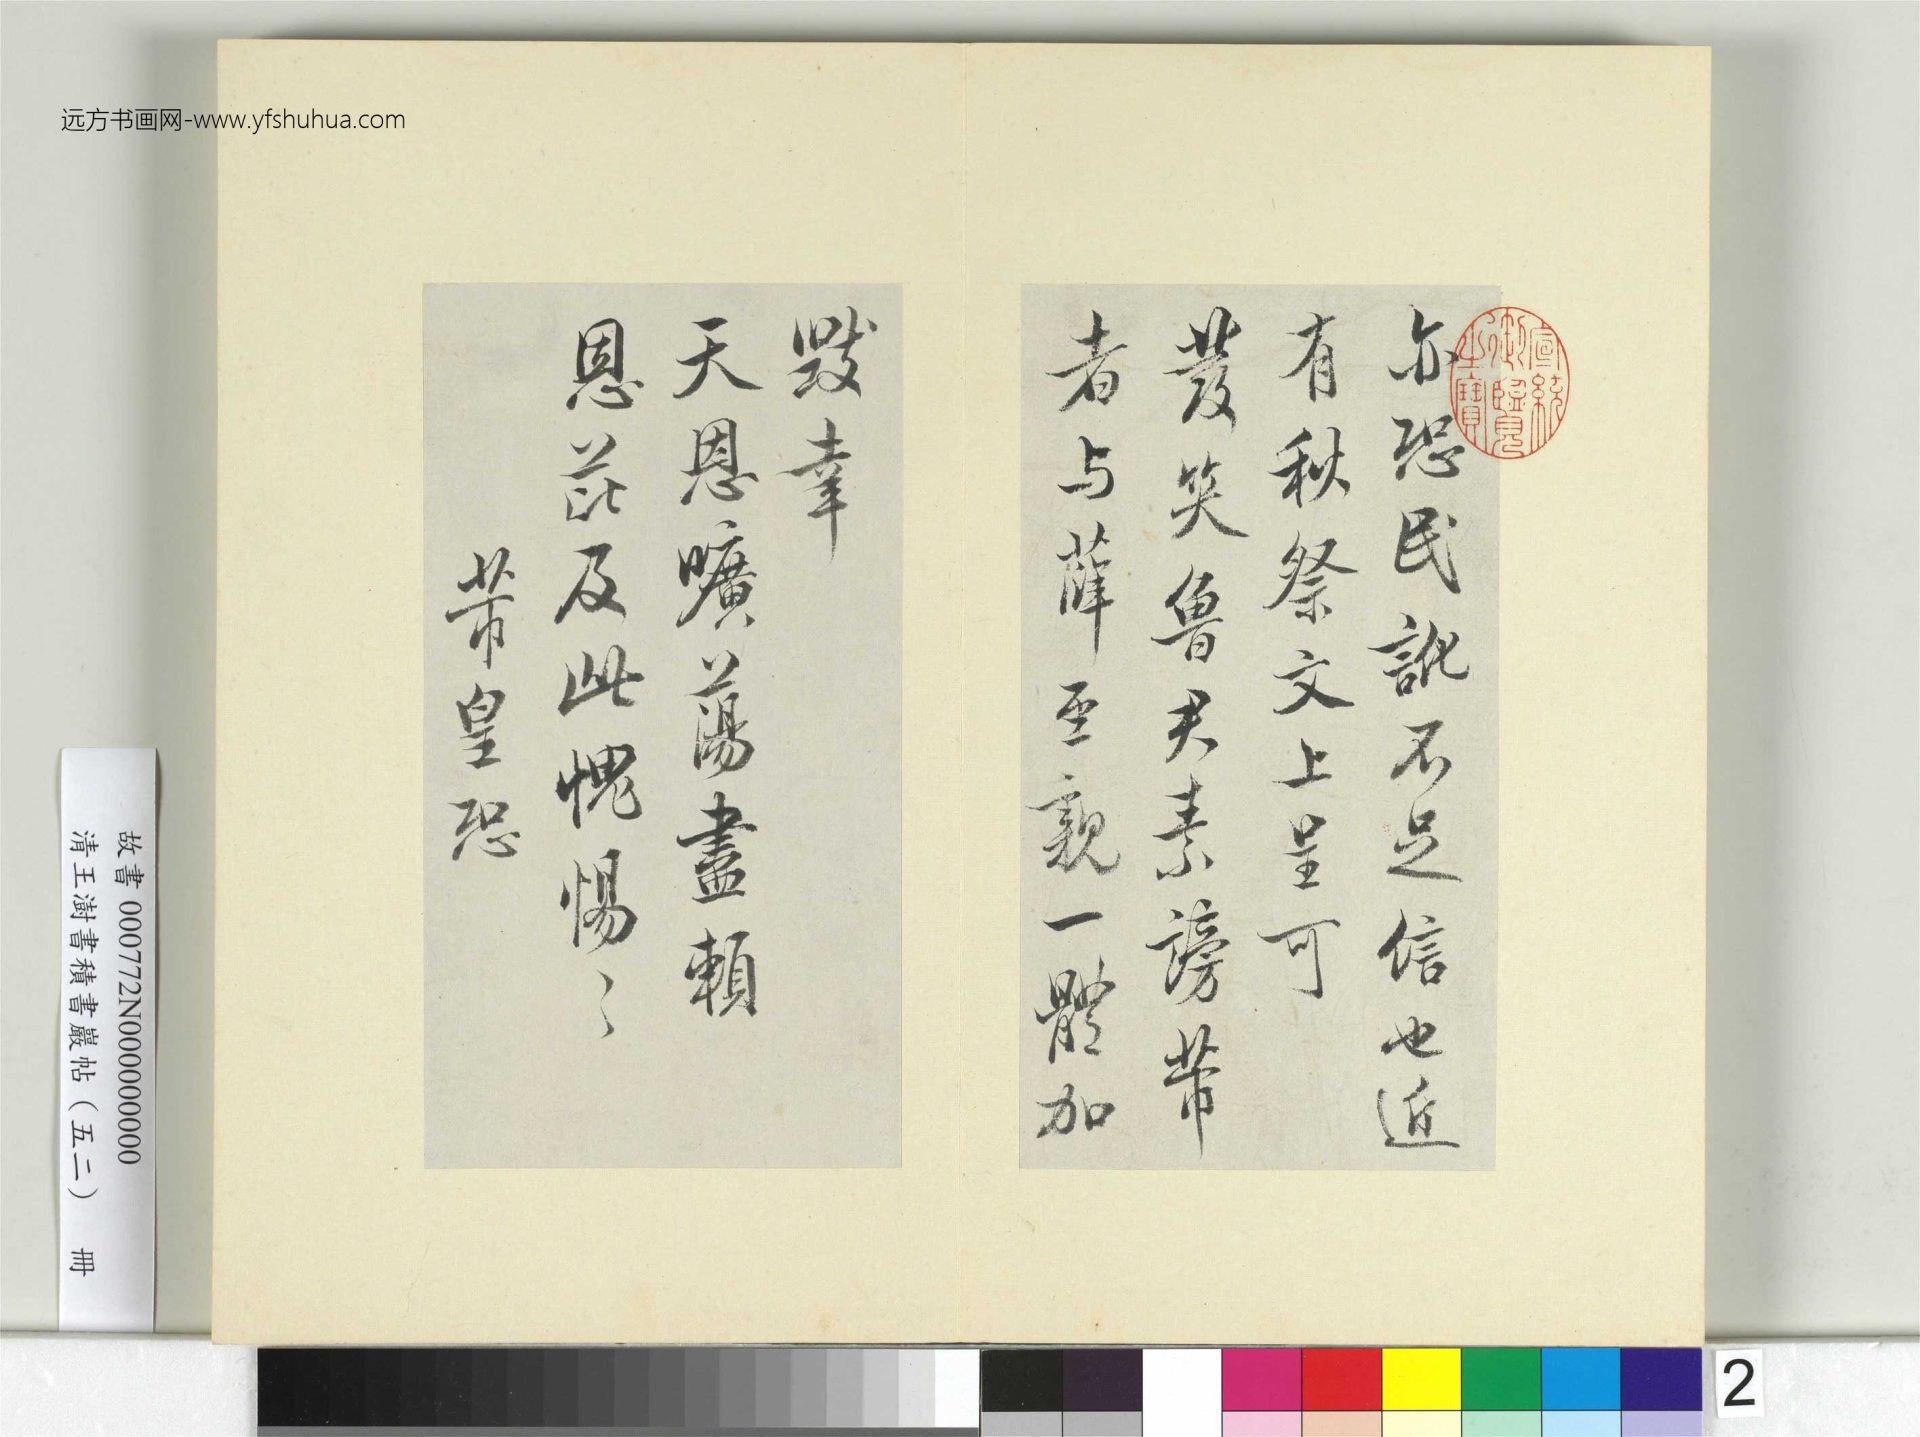 远方书画网-www.yfshuhua.com
宣統
御覽
之寶
亦恐民訛不足信也近
有秋祭文上呈可
發笑魯君素謗芾
者与薛至親一體加
毀幸
天恩曠蕩盡賴
恩芘及此愧惕〻
芾皇恐
故書 000772N000000000
清王澍書積書巖帖（五二） 冊
2